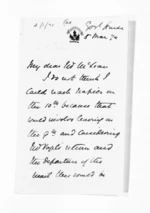 Govt House
5 Mar 74
My dear Mr McLean
I do not think I
could reach Napier on
the 10th because that
would involve leaving on
the 9th and considering
return and
the departure of the
mail there would be